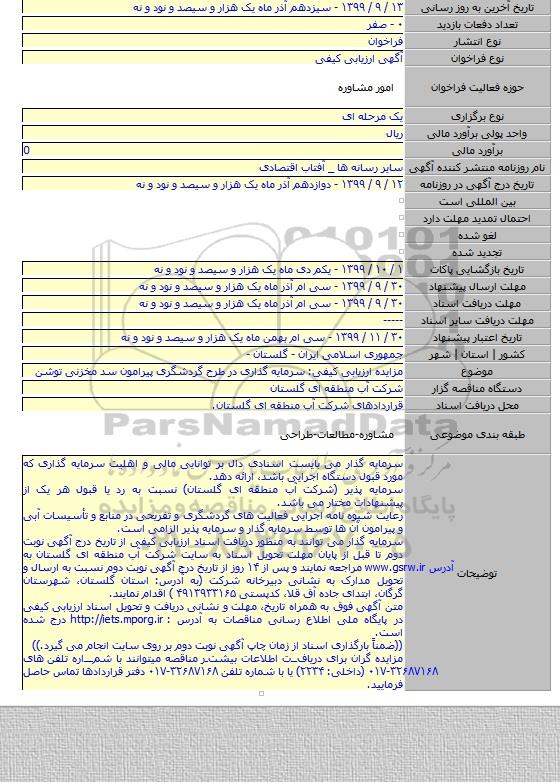 تاریخ آخرین به روز رسانی ۱۳ / ۹ / ۱۳۹۹ - سیزدهم آذر ماه یک هزار و سیصد و نود و نه
تعداد دفعات بازدید ۰ - صفر
نوع انتشار فراخوان
نوع فراخوان آگهی ارزیابی کیفی
حوزه فعالیت فراخوان امور مشاوره
نوع برگزاری یک مرحله ای
واحد پولی برآورد مالی ریال
برآورد مالی 0
نام روزنامه منتشر کننده آگهی سایر رسانه ها _ آفتاب اقتصادی
تاریخ درج آگهی در روزنامه ۱۲ / ۹ / ۱۳۹۹ - دوازدهم آذر ماه یک هزار و سیصد و نود و نه
بین المللی است
احتمال تمدید مهلت دارد
لغو شده
تجدید شده
تاریخ بازگشایی پاکات ۱ / ۱۰ / ۱۳۹۹ - یکم دی ماه یک هزار و سیصد و نود و نه
مهلت ارسال پیشنهاد ۳۰ / ۹ / ۱۳۹۹ - سی ام آذر ماه یک هزار و سیصد و نود و نه
مهلت دریافت اسناد ۳۰ / ۹ / ۱۳۹۹ - سی ام آذر ماه یک هزار و سیصد و نود و نه
مهلت دریافت سایر اسناد -----
تاریخ اعتبار پیشنهاد ۳۰ / ۱۱ / ۱۳۹۹ - سی ام بهمن ماه یک هزار و سیصد و نود و نه
کشور | استان | شهر جمهوری اسلامی ایران - گلستان -
موضوع مزایده ارزیابی کیفی: سرمایه گذاری در طرح گردشگری پیرامون سد مخزنی توشن
دستگاه مناقصه گزار شرکت آب منطقه ای گلستان
محل دریافت اسناد قراردادهای شرکت آب منطقه ای گلستان.
ParsNamadData
طبقه بندی موضوعی مشاوره-مطالعات-طراحی
توضیحات
سرمایه گذار می بایست اسنادی دال بر توانایی مالی و اهلیت سرمایه گذاری که
مورد قبول دستگاه اجرایی باشد، ارائه دهد.
سرمایه پذیر (شرکت آب منطقه ای گلستان) نسبت به رد یا قبول هر یک از
پیشنهادات مختار می باشد.
رعایت شیوه نامه اجرایی فعالیت های گردشگری و تفریحی در منابع و تأسیسات آبی
و پیرامون آن ها توسط سرمایه گذار و سرمایه پذیر الزامی است.
سرمایه گذار می توانند به منظور دریافت اسناد ارزیابی کیفی از تاریخ درج آگهی نوبت
دوم تا قبل از پایان مهلت تحویل اسناد به سایت شرکت آب منطقه ای گلستان به
آدرس www.gsrw.ir مراجعه نمایند و پس از ۱۴ روز از تاریخ درج آگهی نوبت دوم نسبت به ارسال و
تحویل مدارک به نشانی دبیرخانه شرکت (به آدرس: استان گلستان، شهرستان
گرگان، ابتدای جاده آق قلا، کدپستی ۴۹۱۳۹۳۳۱۶۵ ) اقدام نمایند.
متن آگهی فوق به همراه تاریخ، مهلت و نشانی دریافت و تحویل اسناد ارزیابی کیفی
در پایگاه ملی اطلاع رسانی مناقصات به آدرس : http://iets.mporg.ir درج شده
است.
((ضمناً بارگذاری اسناد از زمان چاپ آگهی نوبت دوم بر روی سایت انجام می گیرد.))
مزایده گران برای دریافت اطلاعات بیشتر مناقصه میتوانند با شماره تلفن های
۰۱۷-۳۲۶۸۷۱۶۸ (داخلی: ۲۲۳۴) یا با شماره تلفن ۳۲۶۸۷۱۶۸-۰۱۷ دفتر قراردادها تماس حاصل
فرمایید.